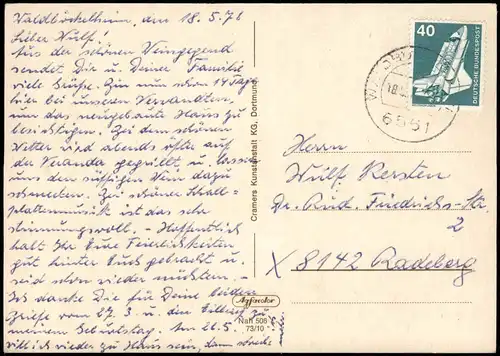 Waldböckelheim, am 18.5.76
Lieber Wulf!
Aus der schönen Weingegend
sendet Dir u. Deiner Familie
viele Grüße. Bin nun schon 14 Tage
hier bei unseren Verwandten,
um das neugebaute Haus zu
besichtigen. Bei dem schönen
Wetter wird abends öfter auf
der Veranda gegrillt u. lassen
uns den süffigen Wein dazu
schmecken. Bei schöner Schall-
plattenmusik ist das sehr
stimmungsvoll. - Hoffentlich
habt Ihr Eure Feierlichkeiten
gut hinter Euch gebracht u.
seid schon wieder nüchtern. -
Ich danke Dir für Deine beiden
Briefe vom 27.3. u. den Eilbrief zu
meinem Geburtstag. Am 26.5.
werde ich wieder zu Haus sein, dann schreibe
Cramers Kunstanstalt KG, Dortmund
Agfacolor
Nah 506
73/10
40
DEUTSCHE BUNDESPOST
6551
Herrn
Wulf Kersten
Dr. Rud. Friedrichs-Str.
2
X 8142 Radeberg